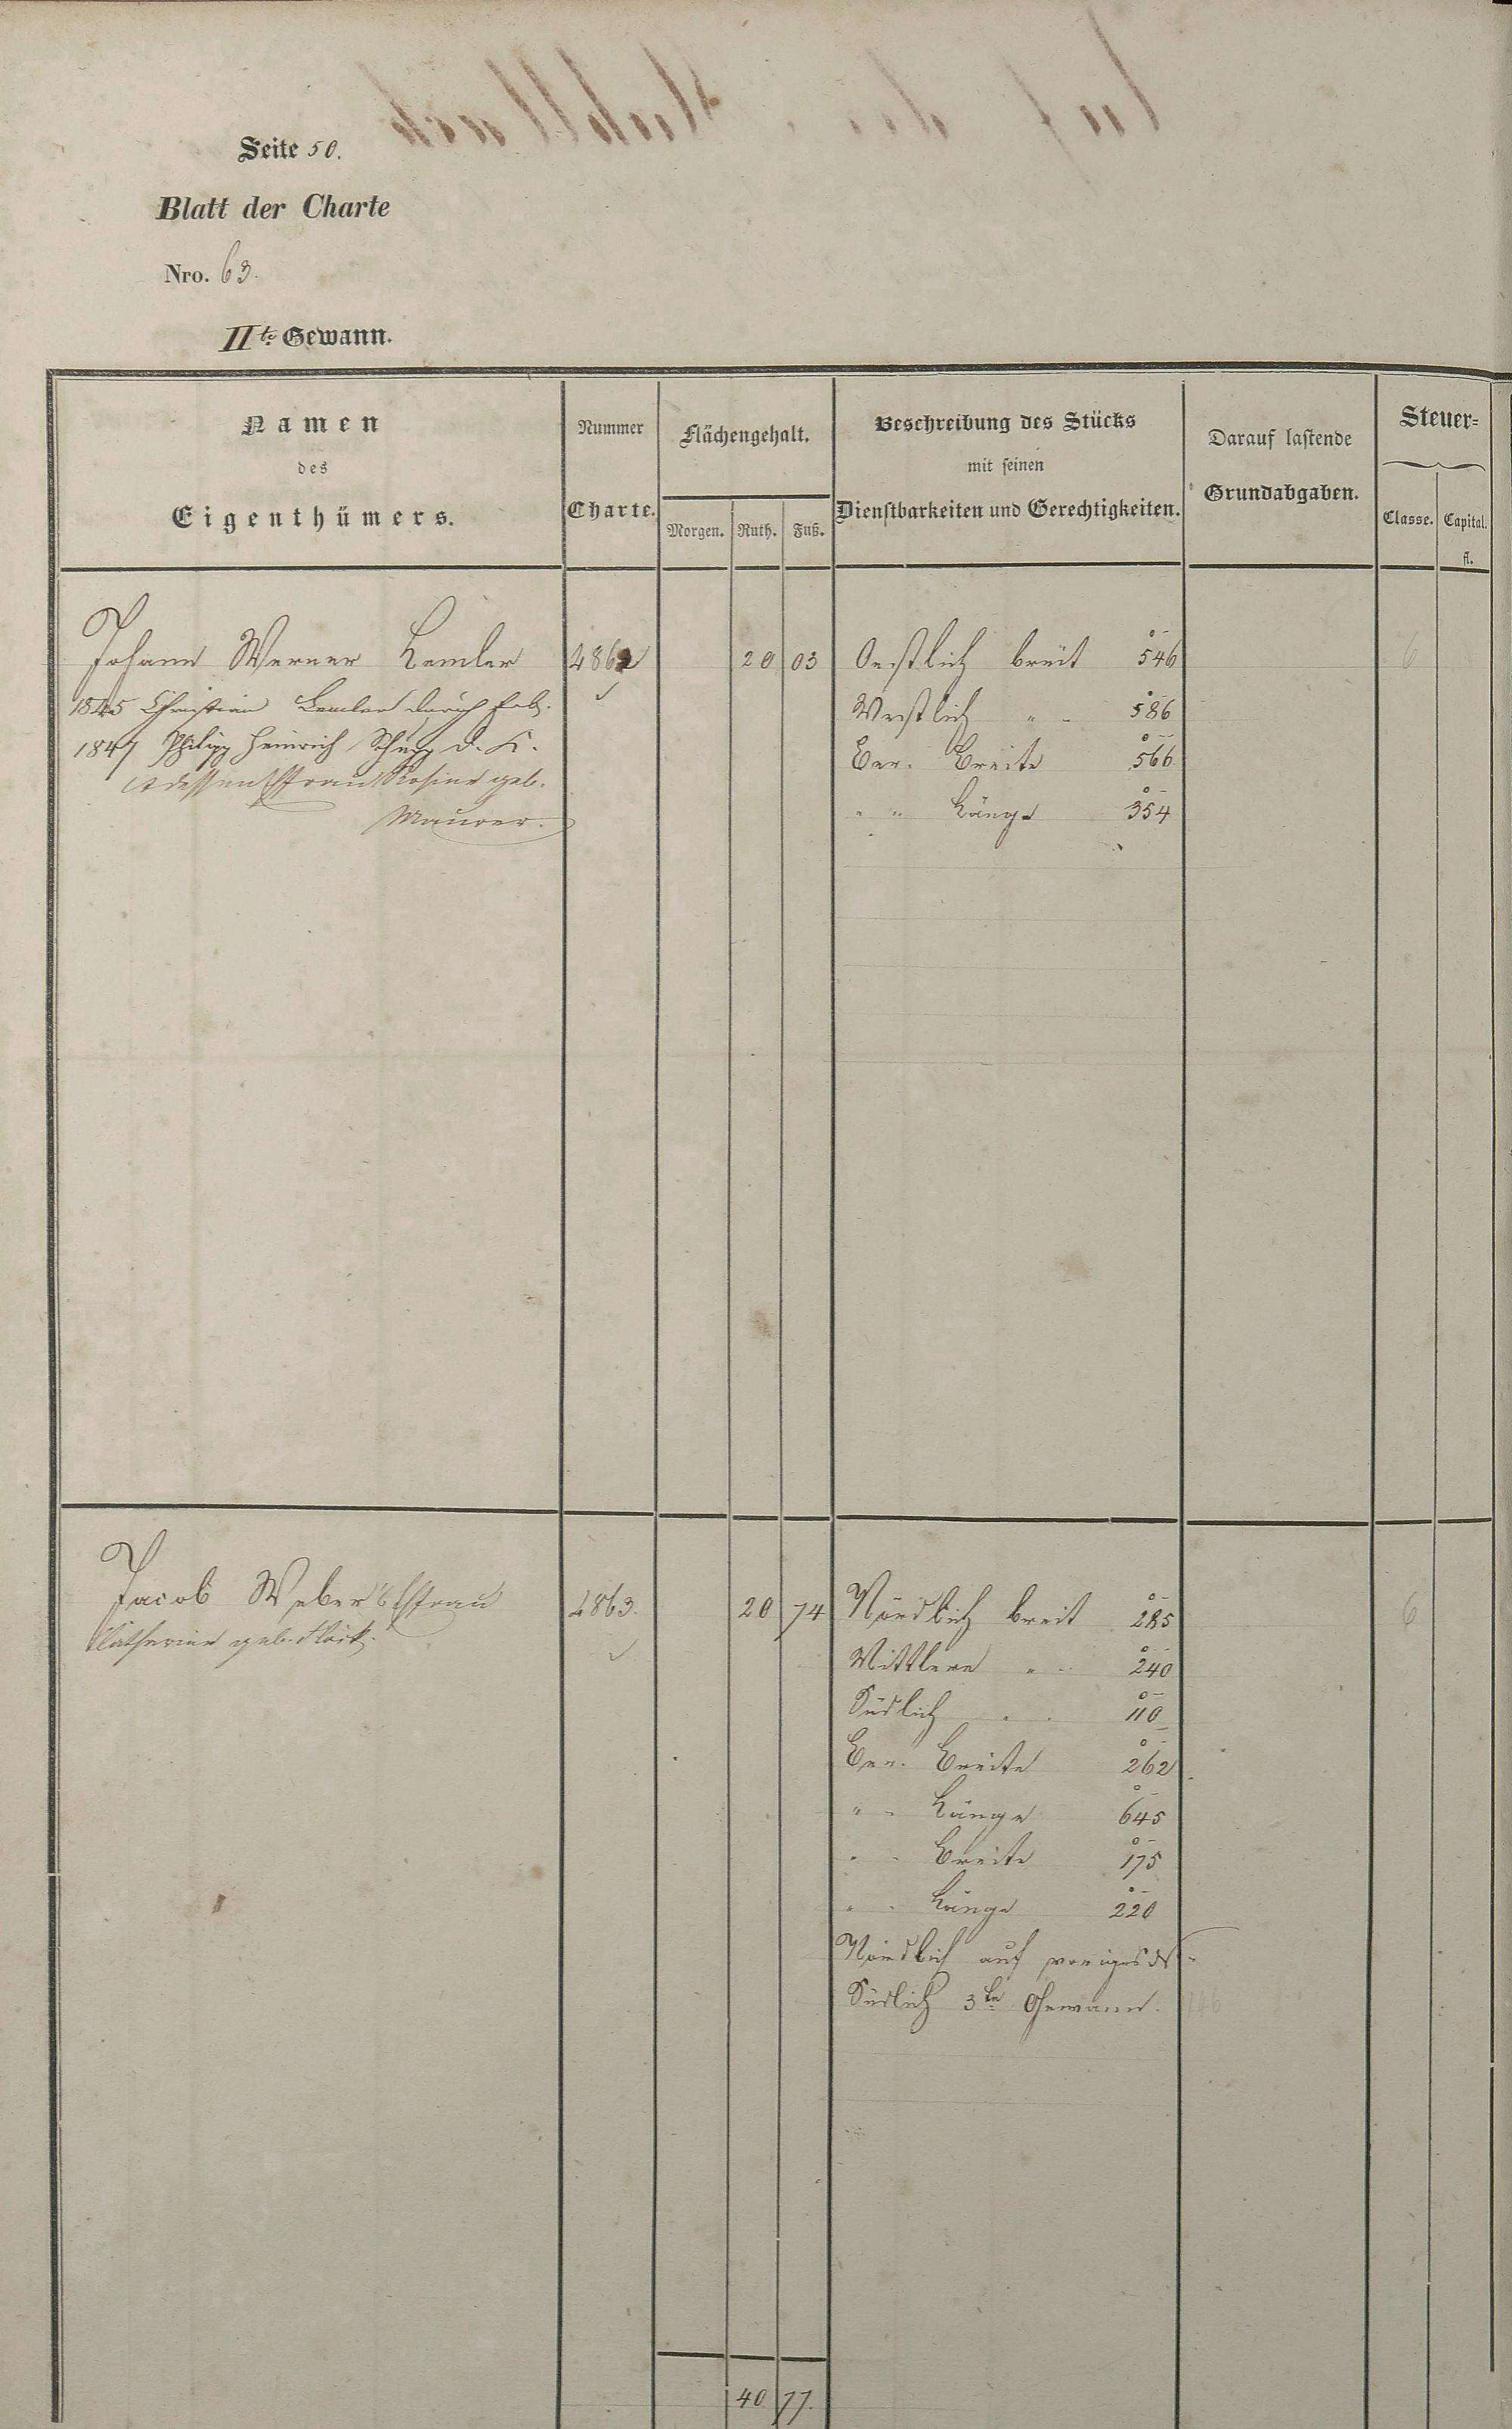 Seite 50.
Blatt der Charte
Nro. 63.
IIte Gewann.
Namen
des
Eigenthümers.
Nummer
Charte.
Flächengehalt.
Morgen. Ruth. Fuß.
Beschreibung des Stücks
mit seinen
Dienstbarkeiten und Gerechtigkeiten.
Darauf lastende
Grundabgaben.
Steuer-
Classe. Capital.
fl.
Johann Werner Lemler 4862 20 03 Oestlich breit 546 6
1845 Christian Lemler durch Erb. Westlich " - 586
1847 Philipp Heinrich Schupp d. K. Corr. Breite 566
dessen Ehefrau Rosine geb. " " Länge 354
Maurer.
Jacob Weber's Ehefrau 4863. 20 74 Nördlich breit 285 6
Catharine geb. Mittlere " - 240
Südlich " - 110
Corr. Breite 262
" - Länge 645
" - Breite 175
" - Länge 220
Nördlich auf voriges
Südlich 3te Gewann. 146
40 77.